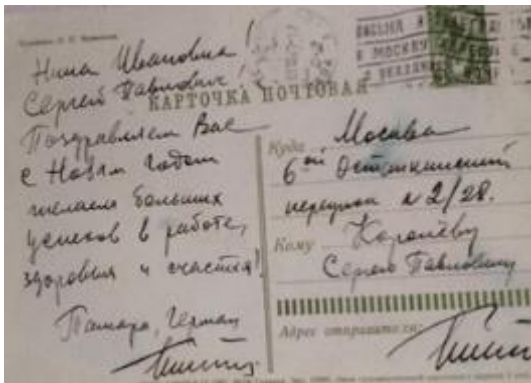 Нина Ивановна!
Сергей Павлович!
Поздравляем Вас
с Новым Годом
желаем больших
успехов в работе,
здоровья и счастья!
Тамара, Герман
КАРТОЧКА ПОЧТОВАЯ
Куда Москва
6ой Останкинский
переулок д 2/28.
Кому Королёву
Сергею Павловичу
Адрес отправителя: